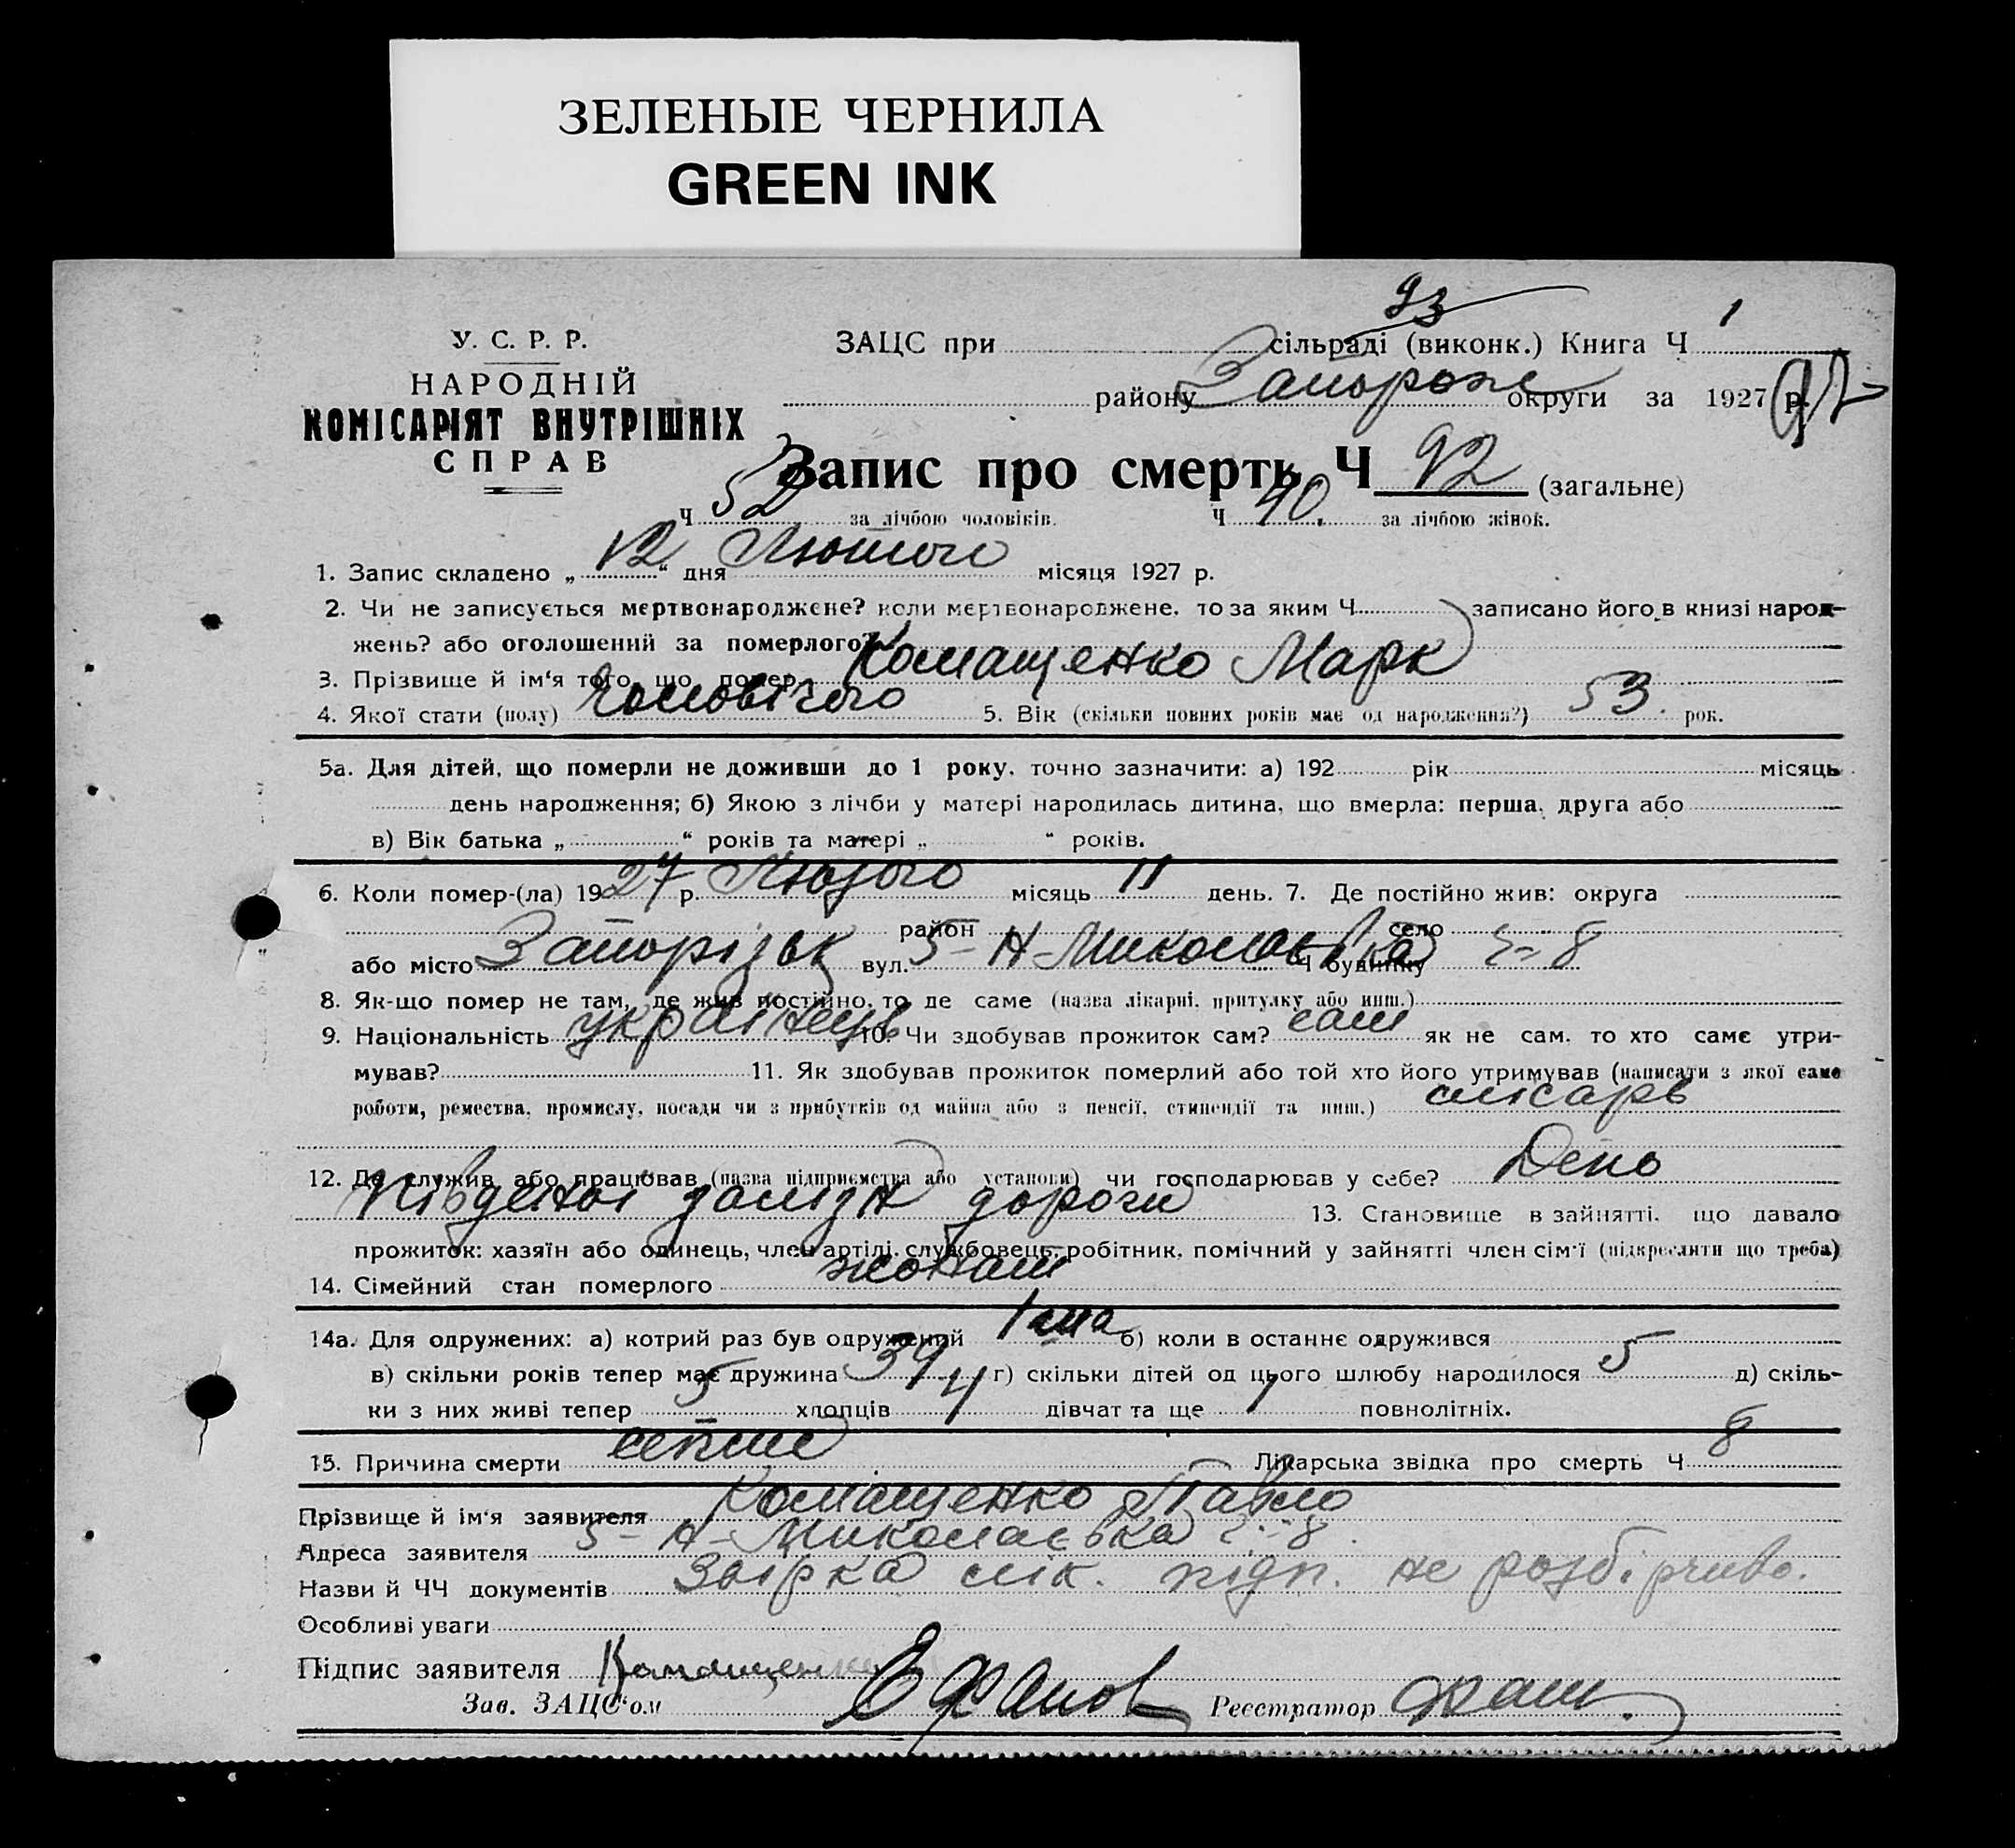 ЗЕЛЕНЫЕ ЧЕРНИЛА
GREEN INK
93
У. С. Р. Р.
ЗАЦС при сільраді (виконк.) Книга Ч 1
НАРОДНІЙ
району Запоріж округи за 1927 р. 92
КОМІСАРІЯТ ВНУТРІШНІХ
СПРАВ
Запис про смерть Ч 92 (загальне)
Ч 52 за лічбою чоловіків. Ч 40. за лічбою жінок.
1. Запис складено „12“ дня Лютого місяця 1927 р.
2. Чи не записується мертвонароджене? коли мертвонароджене, то за яким Ч записано його в книзі народ-
жень? або оголошений за померлого?
3. Прізвище й ім‘я того, що помер Комащенко Марк
4. Якої стати (полу) Чоловічого 5. Вік (скільки повних років має од народження?) 53. рок.
5а. Для дітей, що померли не доживши до 1 року, точно зазначити: а) 192 рік місяць
день народження; б) Якою з лічби у матері народилась дитина, що вмерла: перша, друга або
в) Вік батька „ “ років та матері „ “ років.
6. Коли помер-(ла) 1927 р. Лютого місяць 11 день. 7. Де постійно жив: округа
район село
або місто Запоріжжя вул. 5-Н-Миколаєвка Ч будинку 8
8. Як-що помер не там, де жив постійно, то де саме (назва лікарні, притулку або инш.)
9. Національність українець 10. Чи здобував прожиток сам? сам як не сам, то хто саме утри-
мував? 11. Як здобував прожиток померлий або той хто його утримував (написати з якої саме
роботи, ремества, промислу, посади чи з прибутків од майна або з пенсії, стипендії та инш.) слісарь
12. Де служив або працював (назва підприємства або установи) чи господарював у себе? Депо
Південної залізн дороги 13. Становище в зайнятті, що давало
прожиток: хазяїн або одинець, член артілі, службовець, робітник, помічний у зайнятті член сім‘ї (підкреслити що треба)
14. Сімейний стан померлого жонат
14а. Для одружених: а) котрий раз був одружений б) коли в останнє одружився
в) скільки років тепер має дружина 39 г) скільки дітей од цього шлюбу народилося 5 д) скіль-
ки з них живі тепер 5 хлопців 4 дівчат та ще 1 повнолітніх.
15. Причина смерти Лікарська звідка про смерть Ч 8
Прізвище й ім‘я заявителя Комащенко Павло
Адреса заявителя 5-Н-Миколаєвка 8.
Назви й ЧЧ документів лік. підп. не розбірчиво.
Особливі уваги
Підпис заявителя Комащенко
Зав. ЗАЦС‘ом Реєстратор